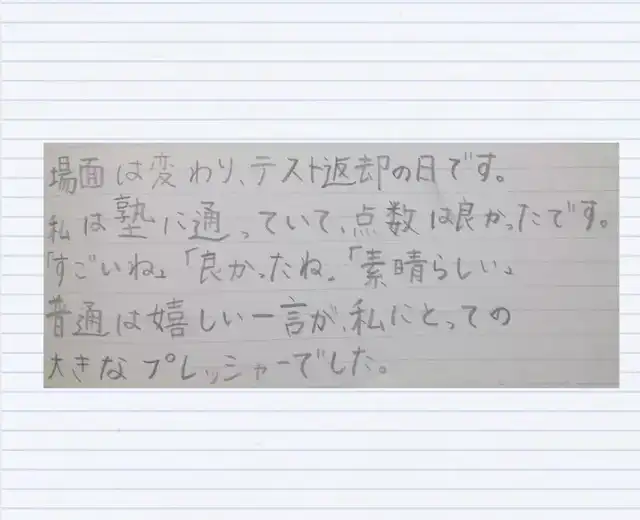 場面は変わり、テスト返却の日です。
私は塾に通っていて、点数は良かったです。
「すごいね」「良かったね」「素晴らしい」
普通は嬉しい一言が、私にとっての
大きなプレッシャーでした。